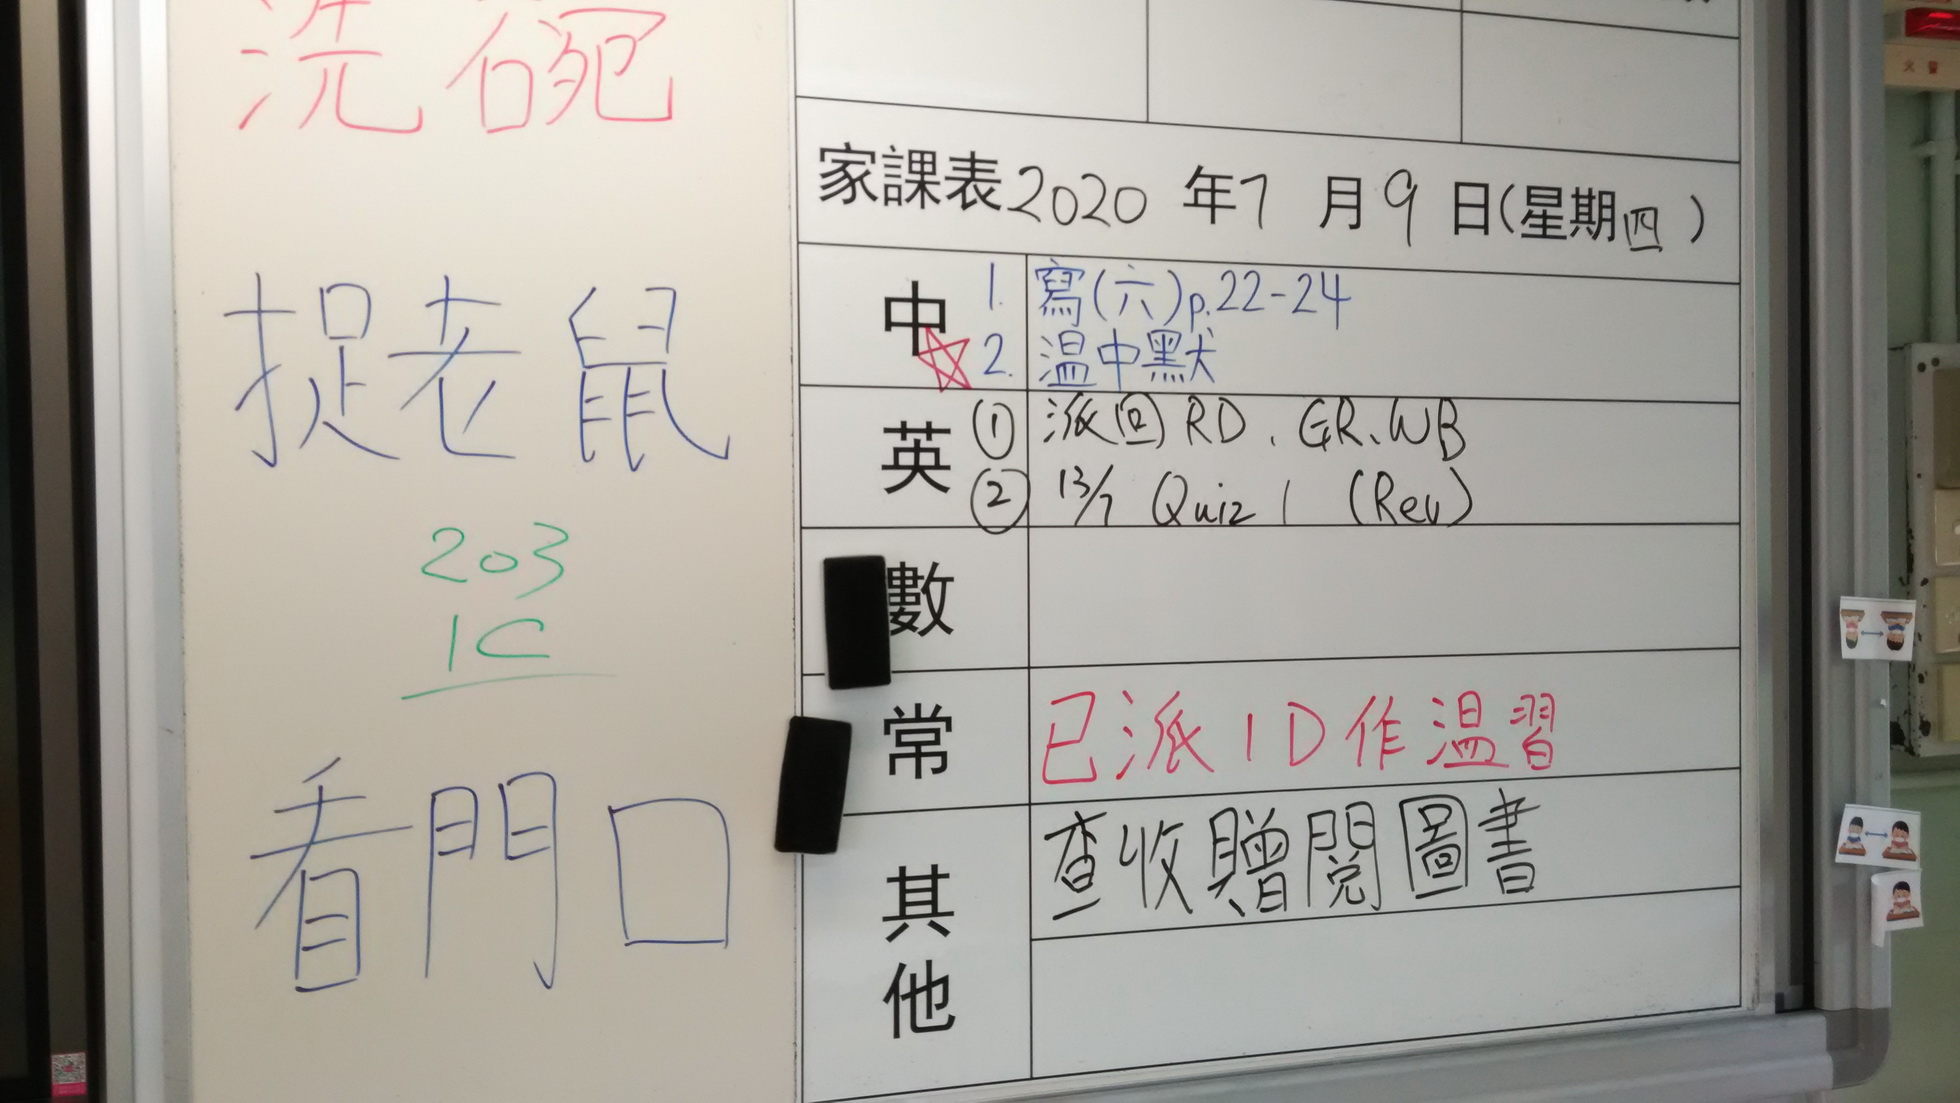 洗碗
捉老鼠
203
1C
看門口
家課表2020年7月9日(星期四)
中
1. 寫(六)p.22-24
2. 温中默
英
① 派回RD、GR、WB
② 13/7 Quiz 1 (Rev)
數
常
已派1D作温習
其他
查收贈閱圖書
火警